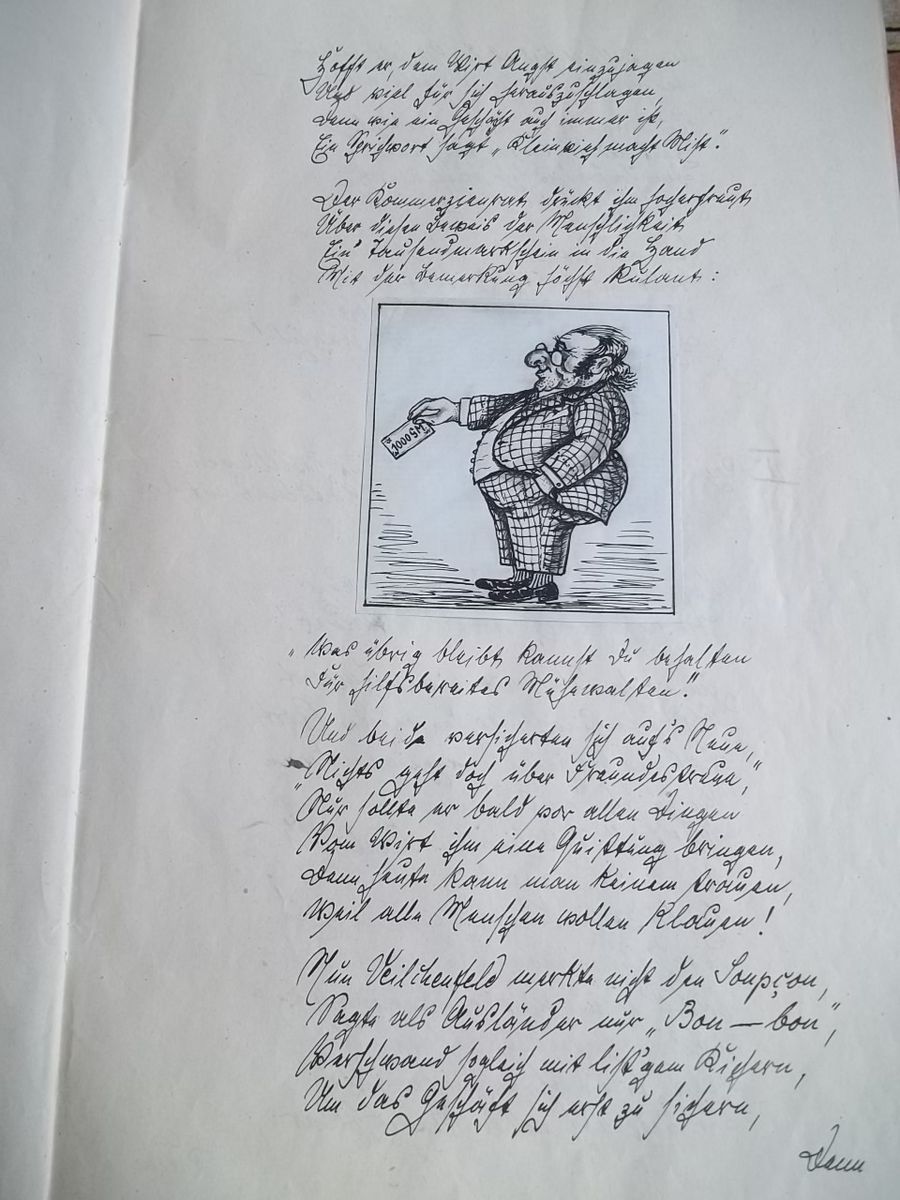 Hofft er, dem Wirt Angst einzujagen
Und viel für sich herauszuschlagen,
Denn wie ein Geschäft auch immer ist,
Ein Sprichwort sagt „Kleinvieh macht Mist".
Der Kommerzienrat drückt ihm hocherfreut
Über diesen Beweis der Menschlichkeit
Ein' Tausendmarkschein in die Hand
Mit der Bemerkung höchst kulant:
1000 M
„Was übrig bleibt kannst Du behalten
Für hilfsbereites Mühewalten."
Und beide versicherten sich auf's Neue,
„Nichts geht doch über Freundestreue",
Nur sollte er bald vor allen Dingen
Vom Wirt ihm eine Quittung bringen,
Denn heute kann man keinem trauen,
Weil alle Menschen wollen klauen!
Nun Veilchenfeld merkte nicht den Soupçon,
Sagte als Ausländer nur „Bon — bon",
Verschwand sogleich mit list'gem Kichern,
Um das Geschäft sich erst zu sichern,
Dann